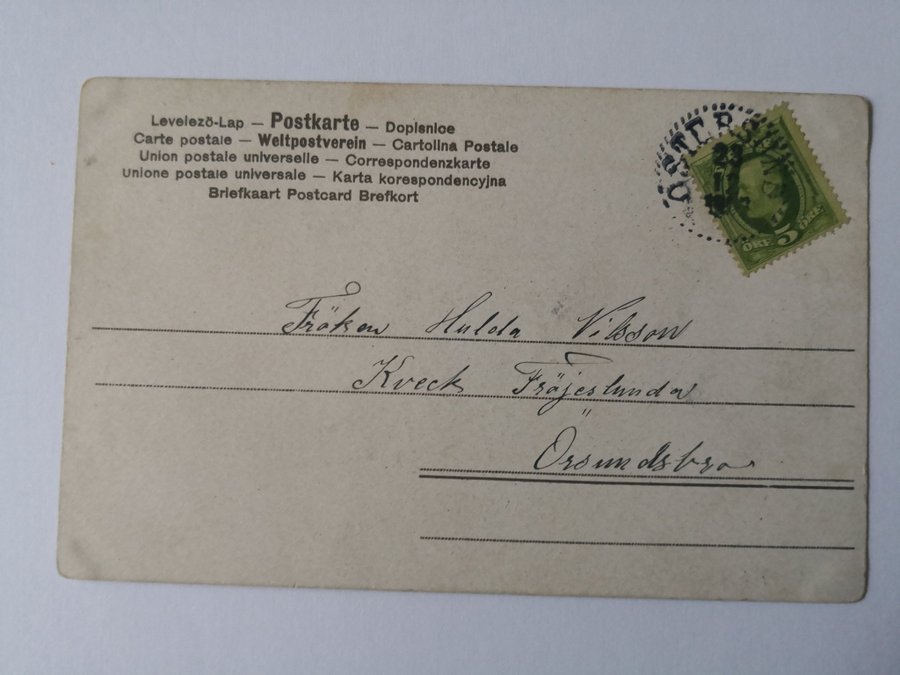 Levelező-Lap — Postkarte — Dopisnice
Carte postale — Weltpostverein — Cartolina Postale
Union postale universelle — Correspondenzkarte
Unione postale universale — Karta korespondencyjna
Briefkaart Postcard Brefkort
5
ÖRE ÖRE
Fröken Hulda Nilsson
Kveck Fröjeslunda
Örsundsbro